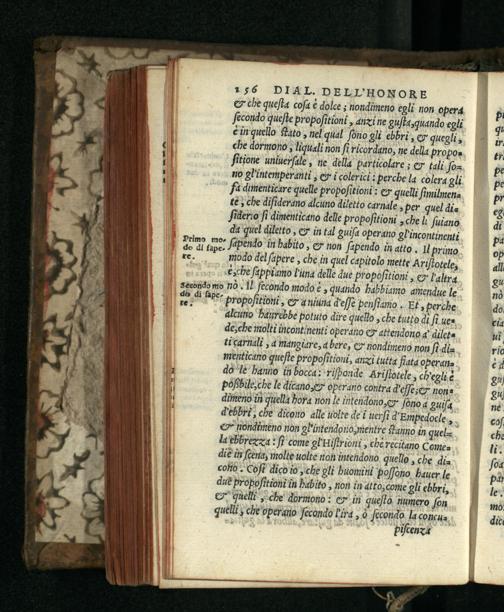 256 DIAL. DELL'HONORE
& che questa cosa è dolce; nondimeno egli non opera
secondo queste propositioni, anzi ne gusta, quando egli
è in quello stato, nel qual sono gli ebbri, & quegli,
che dormono, liquali non si ricordano, ne della propo-
sitione universale, ne della particolare; & tali so-
no gl'intemperanti, & i colerici: perche la colera gli
fa dimenticare quelle propositioni: & quelli similmen-
te, che disiderano alcuno diletto carnale, per quel di-
siderio si dimenticano delle propositioni, che li suiano
da quel diletto, & in tal guisa operano gl'incontinenti
sapendo in habito, & non sapendo in atto. Il primo
modo del sapere, che in quel capitolo mette Aristotele,
è, che sappiamo l'una delle due propositioni, & l'altra
nò. Il secondo modo è, quando habbiamo amendue le
propositioni, & a niuna d'esse pensiamo. Et, perche
alcuno haurebbe potuto dire quello, che tutto dì si ue-
de, che molti incontinenti operano & attendono a' dilet-
ti carnali, a mangiare, a bere, & nondimeno non si di-
menticano queste propositioni, anzi tutta fiata operan-
do le hanno in bocca: risponde Aristotele, ch'egli è
possibile, che le dicano, & operano contra d'esse; & non-
dimeno in quella hora non le intendono, & sono a guisa
d'ebbri, che dicono alle uolte de i uersi d'Empedocle,
& nondimeno non gl'intendono, mentre stanno in quel-
la ebbrezza: sì come gl'Histrioni, che recitano Come-
die in scena, molte uolte non intendono quello, che di-
cono. Così dico io, che gli huomini possono hauer le
due propositioni in habito, non in atto, come gli ebbri,
& quelli, che dormono: & in questo numero son
quelli, che operano secondo l'ira, ò secondo la concu-
piscenza
Primo mo-
do di sape-
re.
Secondo mo
do di sape-
re.